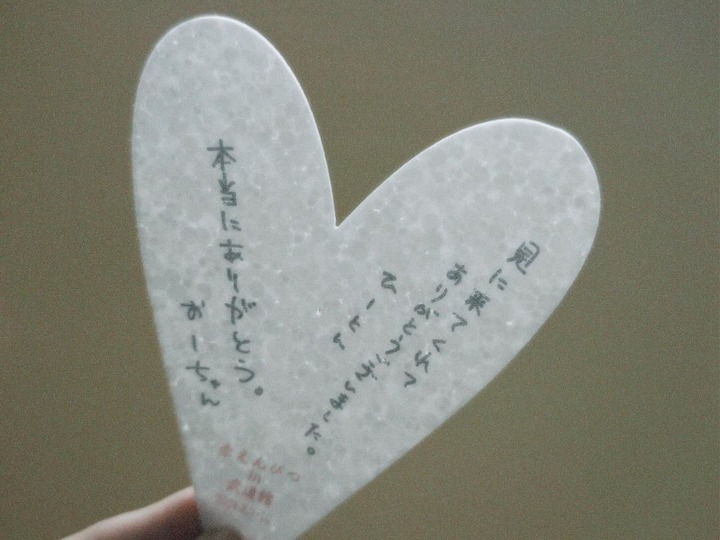 見に来てくれて
ありがとうございました。
ひーとん
本当にありがとう。
おーちゃん
赤えんぴつ
in
武道館